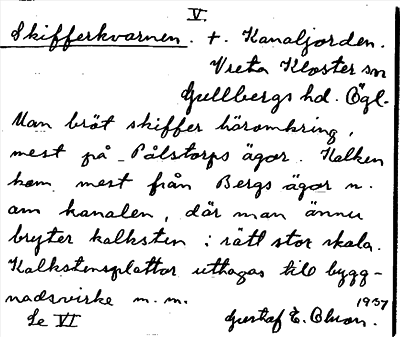 V.
Skifferkvarnen. + . Kanaljorden.
Vreta Kloster sn
Gullbergs hd. Ögl.
Man bröt skiffer häromkring,
mest på Pålstorps ägor. Kalken
kom mest från Bergs ägor n.
om kanalen, där man ännu
bryter kalksten i rätt stor skala.
Kalkstensplattor uttagas till bygg-
nadsvirke m. m.
1937
Se VI Gustaf E. Olson.